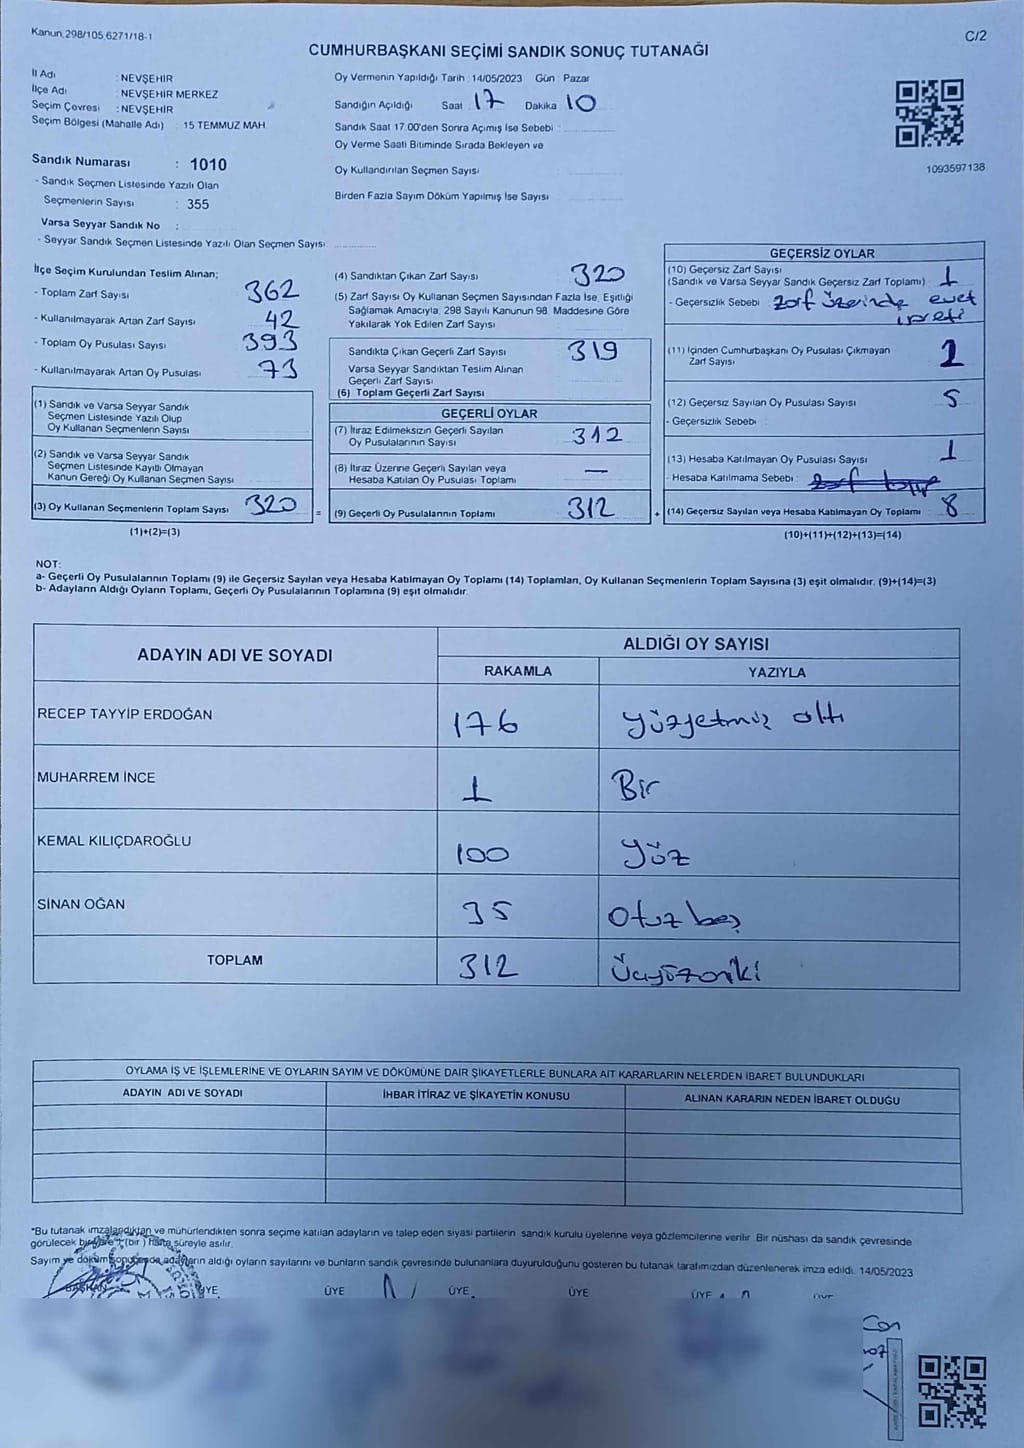 Kanun 298/105 6271/18-1
C/2
CUMHURBAŞKANI SEÇİMİ SANDIK SONUÇ TUTANAĞI
İl Adı : NEVŞEHİR
İlçe Adı : NEVŞEHİR MERKEZ
Seçim Çevresi : NEVŞEHİR
Seçim Bölgesi (Mahalle Adı) : 15 TEMMUZ MAH.
Sandık Numarası : 1010
- Sandık Seçmen Listesinde Yazılı Olan
Seçmenlerin Sayısı : 355
Varsa Seyyar Sandık No :
- Seyyar Sandık Seçmen Listesinde Yazılı Olan Seçmen Sayısı:
Oy Vermenin Yapıldığı Tarih : 14/05/2023 Gün : Pazar
Sandığın Açıldığı Saat : 17 Dakika : 10
Sandık Saat 17.00'den Sonra Açımış İse Sebebi :
Oy Verme Saati Bitiminde Sırada Bekleyen ve
Oy Kullandırılan Seçmen Sayısı
Birden Fazla Sayım Döküm Yapılmış İse Sayısı
1093597138
İlçe Seçim Kurulundan Teslim Alınan;
- Toplam Zarf Sayısı 362
- Kullanılmayarak Artan Zarf Sayısı 42
- Toplam Oy Pusulası Sayısı 393
- Kullanılmayarak Artan Oy Pusulası 73
(1) Sandık ve Varsa Seyyar Sandık
Seçmen Listesinde Yazılı Olup
Oy Kullanan Seçmenlerin Sayısı
(2) Sandık ve Varsa Seyyar Sandık
Seçmen Listesinde Kayıtlı Olmayan
Kanun Gereği Oy Kullanan Seçmen Sayısı
(3) Oy Kullanan Seçmenlerin Toplam Sayısı 320 =
(1)+(2)=(3)
(4) Sandıktan Çıkan Zarf Sayısı 320
(5) Zarf Sayısı Oy Kullanan Seçmen Sayısından Fazla İse, Eşitliği
Sağlamak Amacıyla, 298 Sayılı Kanunun 98. Maddesine Göre
Yakılarak Yok Edilen Zarf Sayısı
Sandıkta Çıkan Geçerli Zarf Sayısı 319
Varsa Seyyar Sandıktan Teslim Alınan
Geçerli Zarf Sayısı
(6) Toplam Geçerli Zarf Sayısı
GEÇERLİ OYLAR
(7) İtiraz Edilmeksizin Geçerli Sayılan
Oy Pusulalarının Sayısı 312
(8) İtiraz Üzerine Geçerli Sayılan veya
Hesaba Katılan Oy Pusulası Toplamı —
(9) Geçerli Oy Pusulalarının Toplamı 312 +
GEÇERSİZ OYLAR
(10) Geçersiz Zarf Sayısı
(Sandık ve Varsa Seyyar Sandık Geçersiz Zarf Toplamı) 1
- Geçersizlik Sebebi : zarf üzerinde evet
işareti
(11) İçinden Cumhurbaşkanı Oy Pusulası Çıkmayan
Zarf Sayısı 1
(12) Geçersiz Sayılan Oy Pusulası Sayısı 5
- Geçersizlik Sebebi :
(13) Hesaba Katılmayan Oy Pusulası Sayısı 1
- Hesaba Katılmama Sebebi :
(14) Geçersiz Sayılan veya Hesaba Katılmayan Oy Toplamı 8
(10)+(11)+(12)+(13)=(14)
NOT:
a- Geçerli Oy Pusulalarının Toplamı (9) ile Geçersiz Sayılan veya Hesaba Katılmayan Oy Toplamı (14) Toplamları, Oy Kullanan Seçmenlerin Toplam Sayısına (3) eşit olmalıdır. (9)+(14)=(3)
b- Adayların Aldığı Oyların Toplamı, Geçerli Oy Pusulalarının Toplamına (9) eşit olmalıdır.
ADAYIN ADI VE SOYADI
ALDIĞI OY SAYISI
RAKAMLA YAZIYLA
RECEP TAYYİP ERDOĞAN 176 yüzyetmiş altı
MUHARREM İNCE 1 Bir
KEMAL KILIÇDAROĞLU 100 yüz
SİNAN OĞAN 35 Otuz beş
TOPLAM 312 Üçyüzoniki
OYLAMA İŞ VE İŞLEMLERİNE VE OYLARIN SAYIM VE DÖKÜMÜNE DAİR ŞİKAYETLERLE BUNLARA AİT KARARLARIN NELERDEN İBARET BULUNDUKLARI
ADAYIN ADI VE SOYADI İHBAR İTİRAZ VE ŞİKAYETİN KONUSU ALINAN KARARIN NEDEN İBARET OLDUĞU
*Bu tutanak imzalandıktan ve mühürlendikten sonra seçime katılan adayların ve talep eden siyasi partilerin sandık kurulu üyelerine veya gözlemcilerine verilir. Bir nüshası da sandık çevresinde
görülecek bir yere 1 (bir) hafta süreyle asılır.
Sayım ve döküm sonucunda adayların aldığı oyların sayılarını ve bunların sandık çevresinde bulunanlara duyurulduğunu gösteren bu tutanak tarafımızdan düzenlenerek imza edildi. 14/05/2023
BAŞKAN ÜYE ÜYE ÜYE ÜYE ÜYE